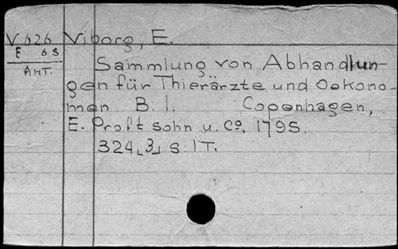 V 626 Viborg, E.
E 6s Sammlung von Abhandlun-
Ant. gen für Thierärzte und Oekono-
men B. 1. Copenhagen,
E. Proft sohn u. Co, 1795.
324,3, s. 1T.